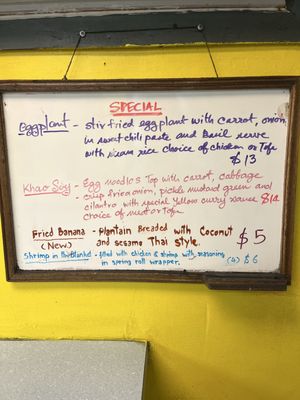 SPECIAL
Eggplant - stir fried eggplant with carrot, onion
in sweet chili paste and Basil serve
with steam rice choice of chicken or Tofu
$13
Khao Soy - Egg noodles Top with carrot, cabbage
- crisp fried onion, pickle mustard green and
cilantro with special Yellow curry sauce $14
choice of meat or Tofu
Fried Banana - Plantain Breaded with Coconut
(New) and sesame Thai style. $5
Shrimp in Blanket - filled with chicken & shrimp with seasoning
in spring roll wrapper. (4) $6